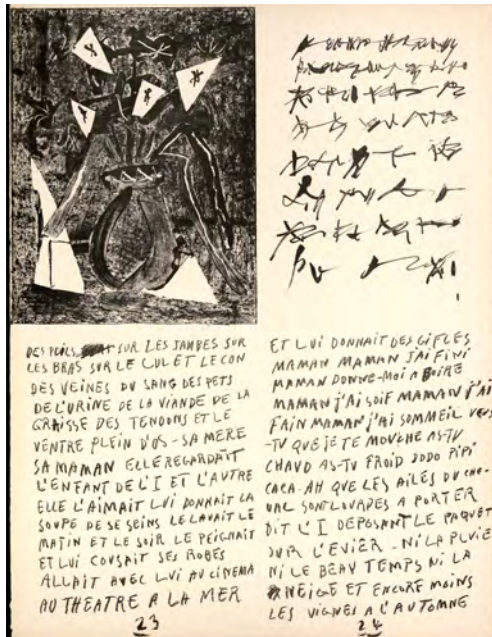 DES POILS SUR LES JAMBES SUR
LES BRAS SUR LE CUL ET LE CON
DES VEINES DU SANG DES PETS
DE L'URINE DE LA VIANDE DE LA
GRAISSE DES TENDONS ET LE
VENTRE PLEIN D'OS - SA MERE
SA MAMAN ELLE REGARDAIT
L'ENFANT DE L'I ET L'AUTRE
ELLE L'AIMAIT LUI DONNAIT LA
SOUPE DE SE SEINS LE LAVAIT LE
MATIN ET LE SOIR LE PEIGNAIT
ET LUI COUSAIT SES ROBES
ALLAIT AVEC LUI AU CINEMA
AU THEATRE A LA MER
23
ET LUI DONNAIT DES GIFLES
MAMAN MAMAN J'AI FINI
MAMAN DONNE-MOI A BOIRE
MAMAN j'AI SOIF MAMAN j'AI
FAIN MAMAN j'AI SOMMEIL VEUX
-TU QUE JE TE MOUCHE AS-TU
CHAUD AS-TU FROID DODO PIPI
CACA-AH QUE LES AILES DU CHE-
VAL SONT LOURDES A PORTER
DIT L'I DEPOSANT LE PAQUET
SUR L'EVIER - NI LA PLUIE
NI LE BEAU TEMPS NI LA
NEIGE ET ENCORE MOINS
LES VIGNES A L'AUTOMNE
24